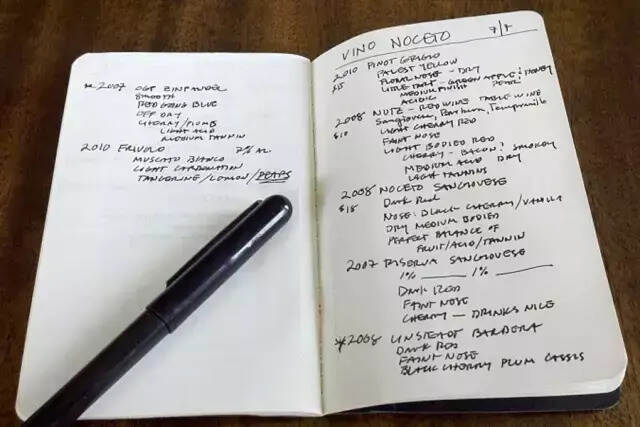 * 2007 OGP ZINFANDEL
SMOOTH
RED GOING BLUE
OFF DAY
CHERRY/PLUMB
LIGHT ACID
MEDIUM TANNIN
2010 FRIVOLO 7% AL
MUSCATO BIANCO
LIGHT CARBONATION
TANGERINE/LEMON/PEARS
VINO NOCETO 7/9
2010 PINOT GRIGIO
$15 PALEST YELLOW
FLORAL NOSE - DRY
LITTLE TART - GREEN APPLE, HONEY
MEDIUM FINISH PEAR!
ACIDIC
2008 NUTZ - RED WINE TABLE WINE
$10 Sangiovese, Barbera, Tempranillo
LIGHT CHERRY RED
FAINT NOSE
LIGHT BODIED RED
CHERRY - BACON? SMOKEY
MEDIUM ACID DRY
LIGHT TANNINS
2008 NOCETO SANGIOVESE
$18 DARK Red
NOSE: BLACK CHERRY/VANILLA
DRY MEDIUM BODIED
PERFECT BALANCE OF
FRUIT/ACID/TANNIN
2007 RISERVA SANGIOVESE
1% ____ 1% ____
DARK RED
FAINT NOSE
CHERRY — DRINKS NICE
* 2008 LINSTEADT BARBERA
DARK RED
FAINT NOSE
BLACK CHERRY PLUM CASSIS